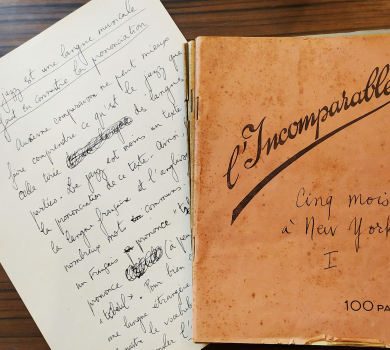 jazz est une langue musicale
faut en connaître la prononciation
Aucune comparaison ne peut mieux
faire comprendre ce qu'est le jazz que
celle tirée des langues
parlées. Le jazz est moins un texte
que la prononciation de ce texte. Ainsi
la langue française et l'anglaise
nombreux mots communs
un Français prononce
prononce
Pour bien
une langue étrangère
l'Incomparable
Cinq mois
à New York
I
100 PA